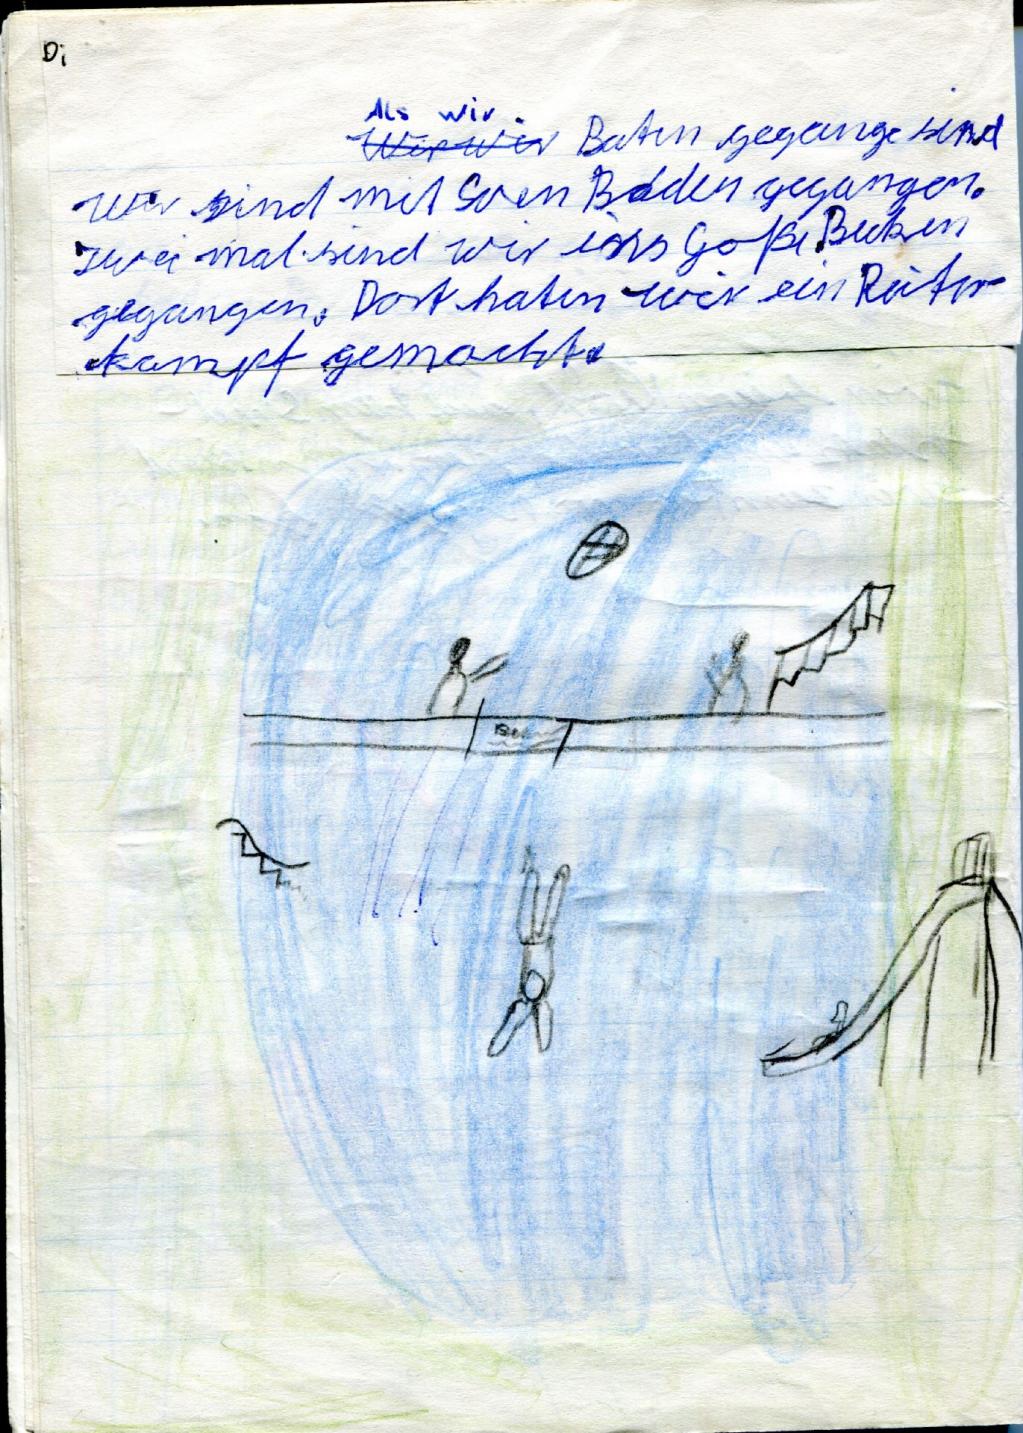 Di
Als wir
Baten gegange sind
Wir sind mit Sven Baden gegangen.
zwei mal sind wir ins Goße Beken
gegangen. Dort haten wir ein Reiter
kampf gemacht.